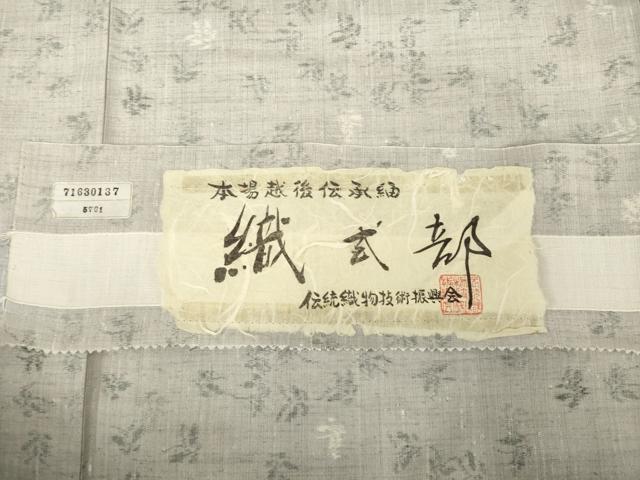 71630137
5701
本場越後伝承紬
織式部
伝統織物技術振興会